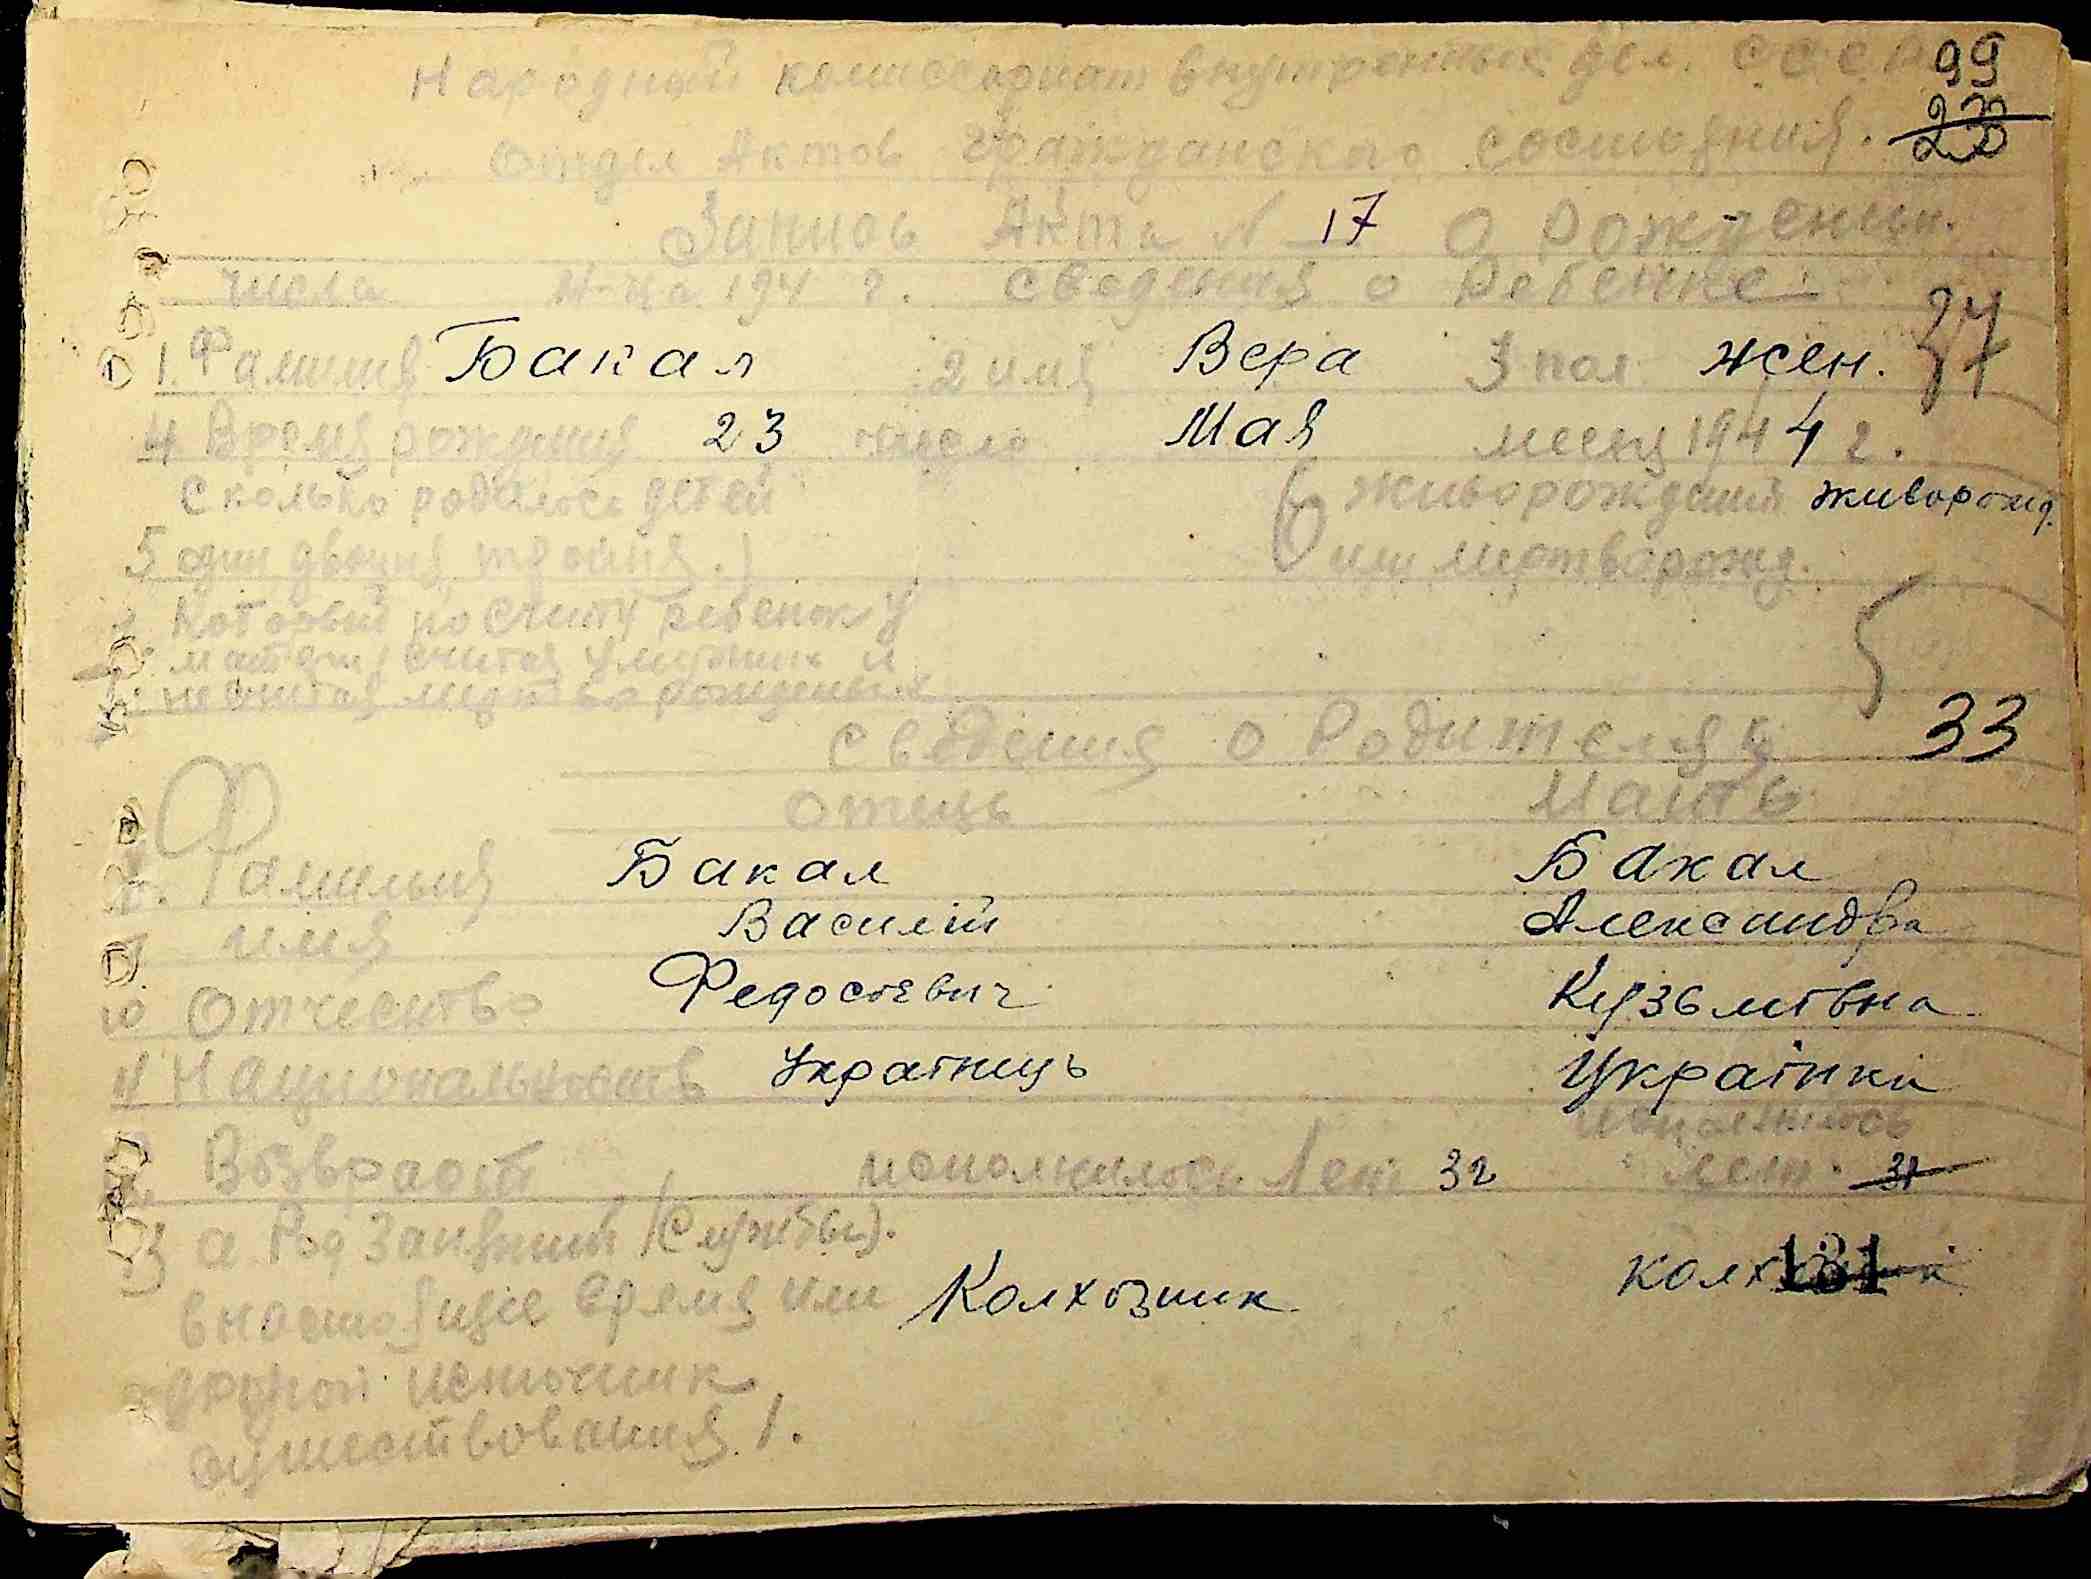 99
Народный комиссариат внутренных дел. СССР
23
Отдел Актов Гражданского состояния.
Запись Акта N 17 о рождении.
числа м-ца 194 г. сведения о Ребенке
1. Фамилия Бакал 2 имя Вера 3 пол жен. 37
4 Время рождения 23 число Мая месец 1944 г.
Сколько родилось детей
6 живорождений живорожд.
5 один двойня тройня.)
или мертворожд.
который по считу ребенок у
матери, считая умерших и
не считая мертворожденых
5
сведения о Родителях 33
отець Мать
Фамилия Бакал Бакал
имя Василій Александра
10 Отчество Федосієвич Кузьмівна
11 Национальность Українець Українка
исполнилось
Возвраст исполнилось Лет 32 лет. 31
13 а Род Занятий (Службы).
в настоящее время или Колхозник колх 131
другой источник
существования).